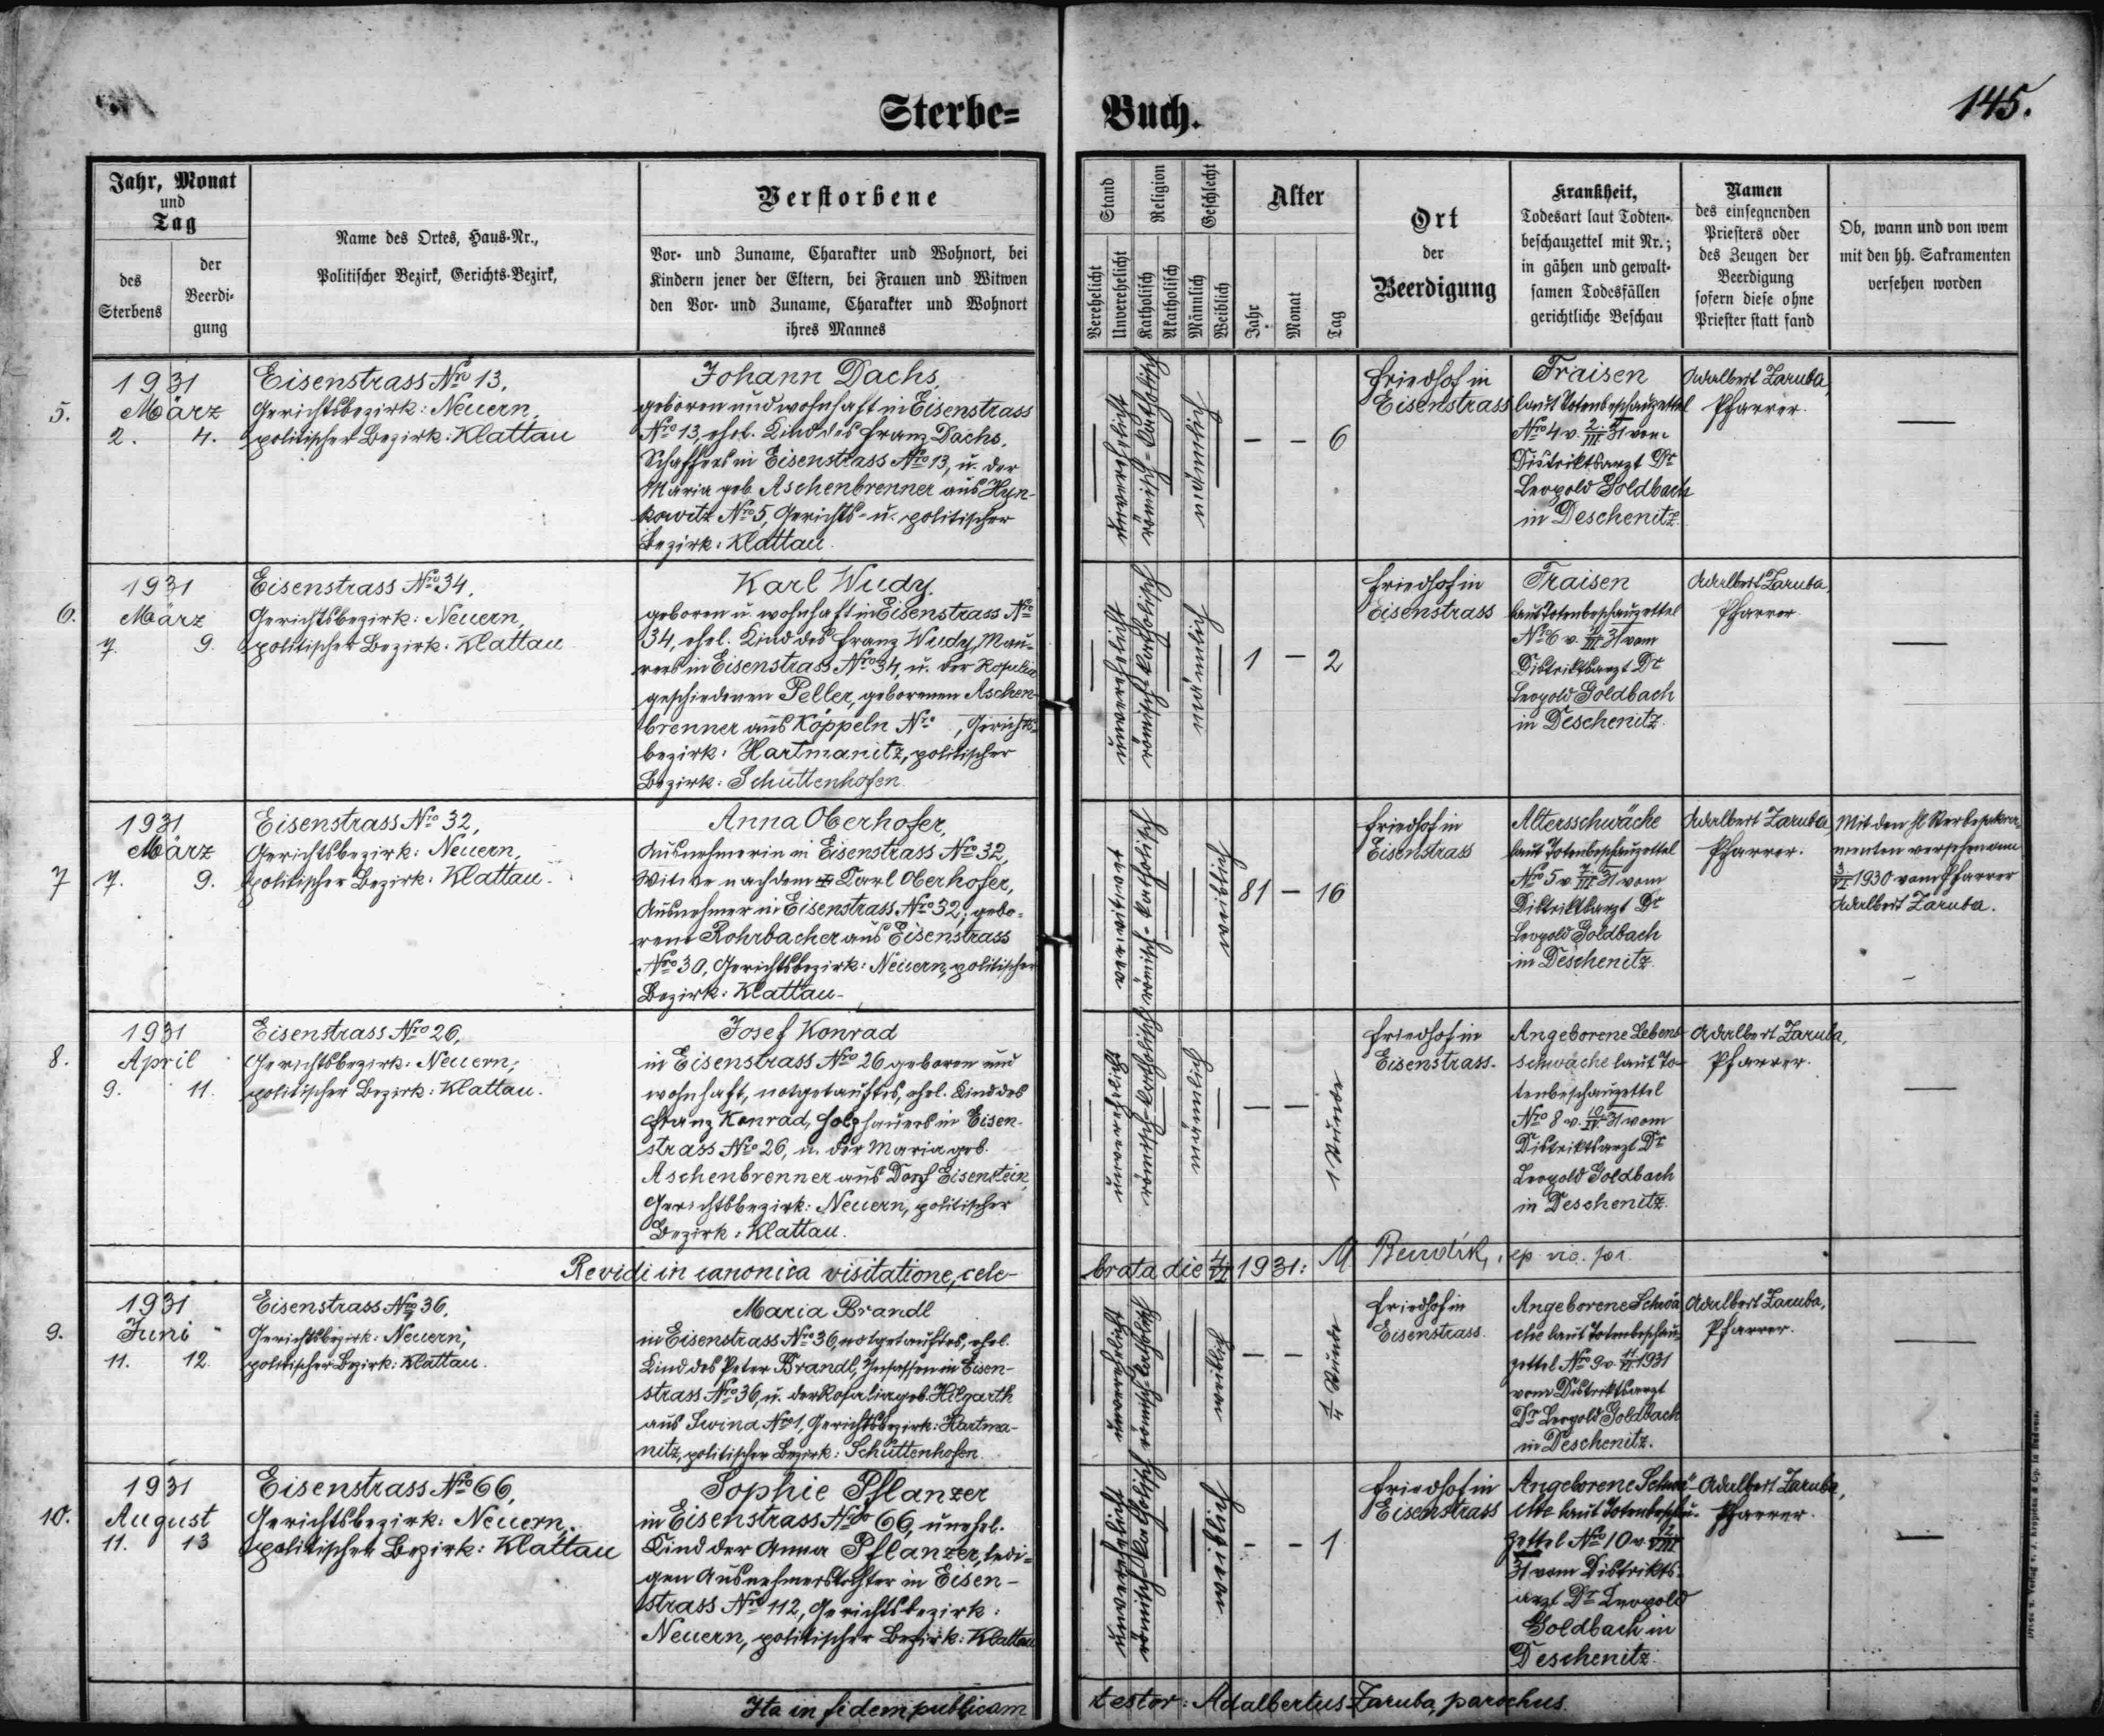 Sterbe=
Buch.
145.
Jahr, Monat
und
Tag
des
Sterbens
der
Beerdi-
gung
Name des Ortes, Haus-Nr.,
Politischer Bezirk, Gerichts-Bezirk,
Verstorbene
Vor- und Zuname, Charakter und Wohnort, bei
Kindern jener der Eltern, bei Frauen und Witwen
den Vor- und Zuname, Charakter und Wohnort
ihres Mannes
Stand
Verehelicht
Unverehelicht
Religion
Katholisch
Akatholisch
Geschlecht
Männlich
Weiblich
Alter
Jahr
Monat
Tag
Ort
der
Beerdigung
Krankheit,
Todesart laut Todten-
beschauzettel mit Nr.;
in gähen und gewalt-
samen Todesfällen
gerichtliche Beschau
Namen
des einsegnenden
Priesters oder
des Zeugen der
Beerdigung
sofern diese ohne
Priester statt fand
Ob, wann und von wem
mit den hh. Sakramenten
versehen worden
5.
1931
März
2. 4.
Eisenstrass Nro 13,
Gerichtsbezirk: Neuern,
politischer Bezirk: Klattau
Johann Dachs,
geboren und wohnhaft in Eisenstrass
Nro 13, ehel. Kind des Franz Dachs,
Schaffers in Eisenstrass Nro 13, u. der
Maria geb. Aschenbrenner aus Hyn-
kowitz Nro 5, Gerichts- u. politischer
Bezirk: Klattau.
unverehelicht
römisch-katholisch
männlich
— — 6
Friedhof in
Eisenstrass
Fraisen
laut Totenbeschauzettel
Nro 4 v. 2./III. 31 vom
Distriktsarzt Dr
Leopold Goldbach
in Deschenitz.
Adalbert Zaruba,
Pfarrer.
—
6.
1931
März
7. 9.
Eisenstrass Nro 34,
Gerichtsbezirk: Neuern,
politischer Bezirk: Klattau
Karl Wudy,
geboren u. wohnhaft in Eisenstrass Nro
34, ehel. Kind des Franz Wudy, Mau-
rers in Eisenstrass Nro 34, u. der Rosalia
geschiedenen Peller, geborenen Aschen-
brenner aus Köppeln Nro , Gerichts-
bezirk: Hartmanitz, politischer
Bezirk: Schüttenhofen
unverehelicht
römisch-katholisch
männlich
1 — 2
Friedhof in
Eisenstrass
Fraisen
laut Totenbeschauzettel
Nro 6 v. /III. 31 vom
Distriktsarzt Dr
Leopold Goldbach
in Deschenitz.
Adalbert Zaruba,
Pfarrer.
—
7
1931
März
7. 9.
Eisenstrass Nro 32,
Gerichtsbezirk: Neuern,
politischer Bezirk: Klattau.
Anna Oberhofer,
Ausnehmerin in Eisenstrass Nro 32,
Witwe nach dem Karl Oberhofer,
Ausnehmer in Eisenstrass Nro 32, gebo-
rene Rohrbacher aus Eisenstrass
Nro 30, Gerichtsbezirk: Neuern, politischer
Bezirk: Klattau.
verwitwet
römisch-katholisch
weiblich
81 — 16
Friedhof in
Eisenstrass
Altersschwäche
laut Totenbeschauzettel
Nro 5 v. 7./III. 31 vom
Distriktsarzt Dr
Leopold Goldbach
in Deschenitz.
Adalbert Zaruba,
Pfarrer.
Mit den hl. Sterbesakra-
menten versehen am
3/VI 1930 vom Pfarrer
Adalbert Zaruba.
8.
1931
April
9. 11.
Eisenstrass Nro 26,
Gerichtsbezirk: Neuern,
politischer Bezirk: Klattau.
Josef Konrad
in Eisenstrass Nro 26 geboren und
wohnhaft, notgetauftes, ehel. Kind des
Franz Konrad, Holzhauers in Eisen-
strass Nro 26, u. der Maria geb.
Aschenbrenner aus Dorf Eisenstein,
Gerichtsbezirk: Neuern, politischer
Bezirk: Klattau.
unverehelicht
römisch-katholisch
männlich
— — 1 Stunde
Friedhof in
Eisenstrass.
Angeborene Lebens-
schwäche laut To-
tenbeschauzettel
Nro 8 v. 10./IV. 31 vom
Distriktsarzt Dr
Leopold Goldbach
in Deschenitz.
Adalbert Zaruba,
Pfarrer.
—
Revidi in canonica visitatione, cele-
brata die 4/VI 1931:
9.
1931
Juni
11. 12.
Eisenstrass Nro 36,
Gerichtsbezirk: Neuern,
politischer Bezirk: Klattau.
Maria Brandl
in Eisenstrass Nro 36, notgetauftes, ehel.
Kind des Peter Brandl, Insassen in Eisen-
strass Nro 36, u. der Rosalia geb. Hilgarth
aus Swina Nro 1, Gerichtsbezirk: Hartma-
nitz, politischer Bezirk: Schüttenhofen.
unverehelicht
römisch-katholisch
weiblich
— — 1/4 Stunde
Friedhof in
Eisenstrass.
Angeborene Schwä-
che laut Totenbeschau-
zettel Nro 9 v. 11/VI 1931
vom Distriktsarzt
Dr Leopold Goldbach
in Deschenitz.
Adalbert Zaruba,
Pfarrer.
—
10.
1931
August
11. 13
Eisenstrass Nro 66,
Gerichtsbezirk: Neuern,
politischer Bezirk: Klattau
Sophie Pflanzer
in Eisenstrass Nro 66, unehel.
Kind der Anna Pflanzer, ledi-
gen Ausnehmerstochter in Eisen-
strass Nro 112, Gerichtsbezirk:
Neuern, politischer Bezirk: Klattau
unverehelicht
römisch-katholisch
weiblich
- - 1
Friedhof in
Eisenstrass
Angeborene Schwä-
che laut Totenbeschau-
zettel Nro 10 v. 12/VIII
31 vom Distrikts-
arzt Dr Leopold
Goldbach in
Deschenitz.
Adalbert Zaruba,
Pfarrer.
—
Ita in fidem publicam
testor: Adalbertus Zaruba, parochus.